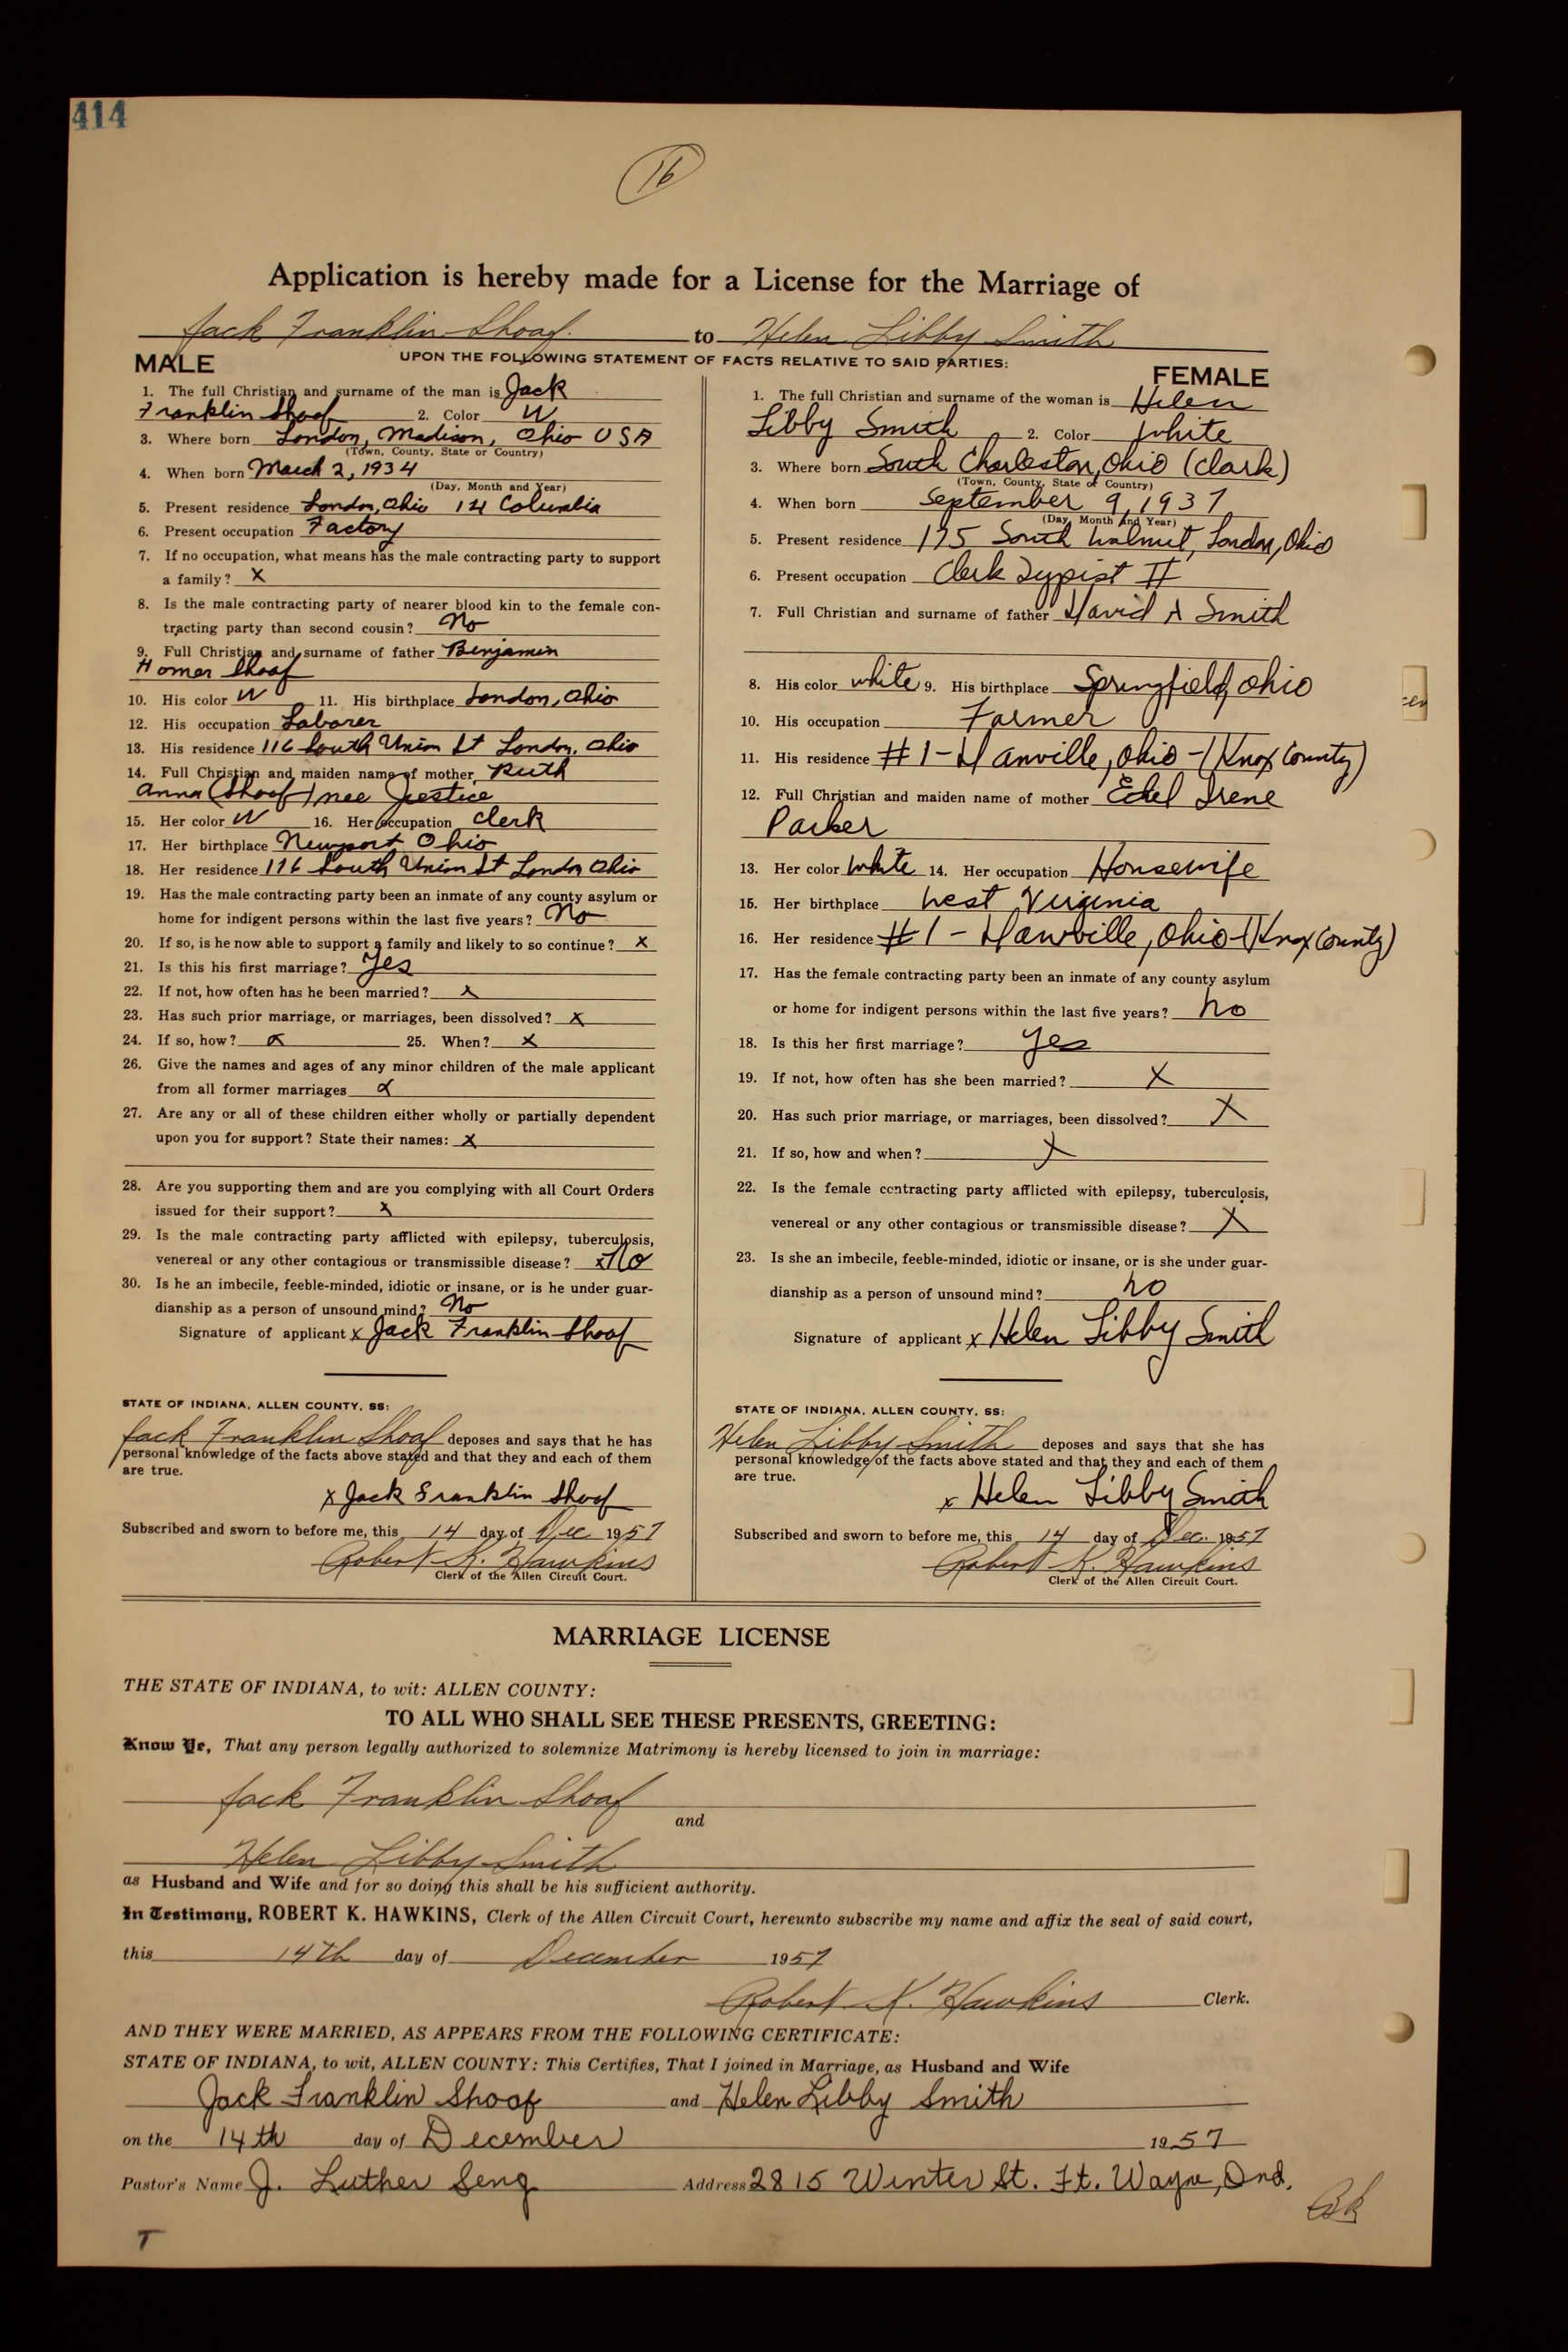 414
16
Application is hereby made for a License for the Marriage of
Jack Franklin Shoaf. to Helen Libby Smith
UPON THE FOLLOWING STATEMENT OF FACTS RELATIVE TO SAID PARTIES:
MALE
1. The full Christian and surname of the man is Jack
Franklin Shoaf 2. Color W
3. Where born London, Madison, Ohio USA
(Town, County, State or Country)
4. When born March 2, 1934
(Day, Month and Year)
5. Present residence London, Ohio 14 Columbia
6. Present occupation Factory
7. If no occupation, what means has the male contracting party to support
a family? X
8. Is the male contracting party of nearer blood kin to the female con-
tracting party than second cousin? No
9. Full Christian and surname of father Benjamin
Homer Shoaf
10. His color W 11. His birthplace London, Ohio
12. His occupation Laborer
13. His residence 116 South Union St London, Ohio
14. Full Christian and maiden name of mother Ruth
Anna (Shoaf) nee Justice
15. Her color W 16. Her occupation Clerk
17. Her birthplace Newport Ohio
18. Her residence 116 South Union St London Ohio
19. Has the male contracting party been an inmate of any county asylum or
home for indigent persons within the last five years? No
20. If so, is he now able to support a family and likely to so continue? X
21. Is this his first marriage? Yes
22. If not, how often has he been married? X
23. Has such prior marriage, or marriages, been dissolved? X
24. If so, how? X 25. When? X
26. Give the names and ages of any minor children of the male applicant
from all former marriages X
27. Are any or all of these children either wholly or partially dependent
upon you for support? State their names: X
28. Are you supporting them and are you complying with all Court Orders
issued for their support? X
29. Is the male contracting party afflicted with epilepsy, tuberculosis,
venereal or any other contagious or transmissible disease? x No
30. Is he an imbecile, feeble-minded, idiotic or insane, or is he under guar-
dianship as a person of unsound mind? No
Signature of applicant x Jack Franklin Shoaf
STATE OF INDIANA, ALLEN COUNTY, SS:
Jack Franklin Shoaf deposes and says that he has
personal knowledge of the facts above stated and that they and each of them
are true.
x Jack Franklin Shoaf
Subscribed and sworn to before me, this 14 day of Dec 1957
Robert K. Hawkins
Clerk of the Allen Circuit Court.
FEMALE
1. The full Christian and surname of the woman is Helen
Libby Smith 2. Color White
3. Where born South Charleston, Ohio (Clark)
(Town, County, State or Country)
4. When born September 9, 1937
(Day, Month and Year)
5. Present residence 175 South Walnut, London, Ohio
6. Present occupation Clerk Typist II
7. Full Christian and surname of father David A Smith
8. His color White 9. His birthplace Springfield, Ohio
10. His occupation Farmer
11. His residence #1 - Danville, Ohio - (Knox County)
12. Full Christian and maiden name of mother Ethel Irene
Parker
13. Her color White 14. Her occupation Housewife
15. Her birthplace West Virginia
16. Her residence #1 - Danville, Ohio - (Knox County)
17. Has the female contracting party been an inmate of any county asylum
or home for indigent persons within the last five years? No
18. Is this her first marriage? Yes
19. If not, how often has she been married? X
20. Has such prior marriage, or marriages, been dissolved? X
21. If so, how and when? X
22. Is the female contracting party afflicted with epilepsy, tuberculosis,
venereal or any other contagious or transmissible disease? X
23. Is she an imbecile, feeble-minded, idiotic or insane, or is she under guar-
dianship as a person of unsound mind? No
Signature of applicant x Helen Libby Smith
STATE OF INDIANA, ALLEN COUNTY, SS:
Helen Libby Smith deposes and says that she has
personal knowledge of the facts above stated and that they and each of them
are true.
x Helen Libby Smith
Subscribed and sworn to before me, this 14 day of Dec. 1957
Robert K. Hawkins
Clerk of the Allen Circuit Court.
MARRIAGE LICENSE
THE STATE OF INDIANA, to wit: ALLEN COUNTY:
TO ALL WHO SHALL SEE THESE PRESENTS, GREETING:
Know Ye, That any person legally authorized to solemnize Matrimony is hereby licensed to join in marriage:
Jack Franklin Shoaf
and
Helen Libby Smith
as Husband and Wife and for so doing this shall be his sufficient authority.
In Testimony, ROBERT K. HAWKINS, Clerk of the Allen Circuit Court, hereunto subscribe my name and affix the seal of said court,
this 14th day of December 1957
Robert K. Hawkins Clerk.
AND THEY WERE MARRIED, AS APPEARS FROM THE FOLLOWING CERTIFICATE:
STATE OF INDIANA, to wit, ALLEN COUNTY: This Certifies, That I joined in Marriage, as Husband and Wife
Jack Franklin Shoaf and Helen Libby Smith
on the 14th day of December 1957
Pastor's Name J. Luther Seng Address 2815 Winter St. Ft. Wayne, Ind.
T